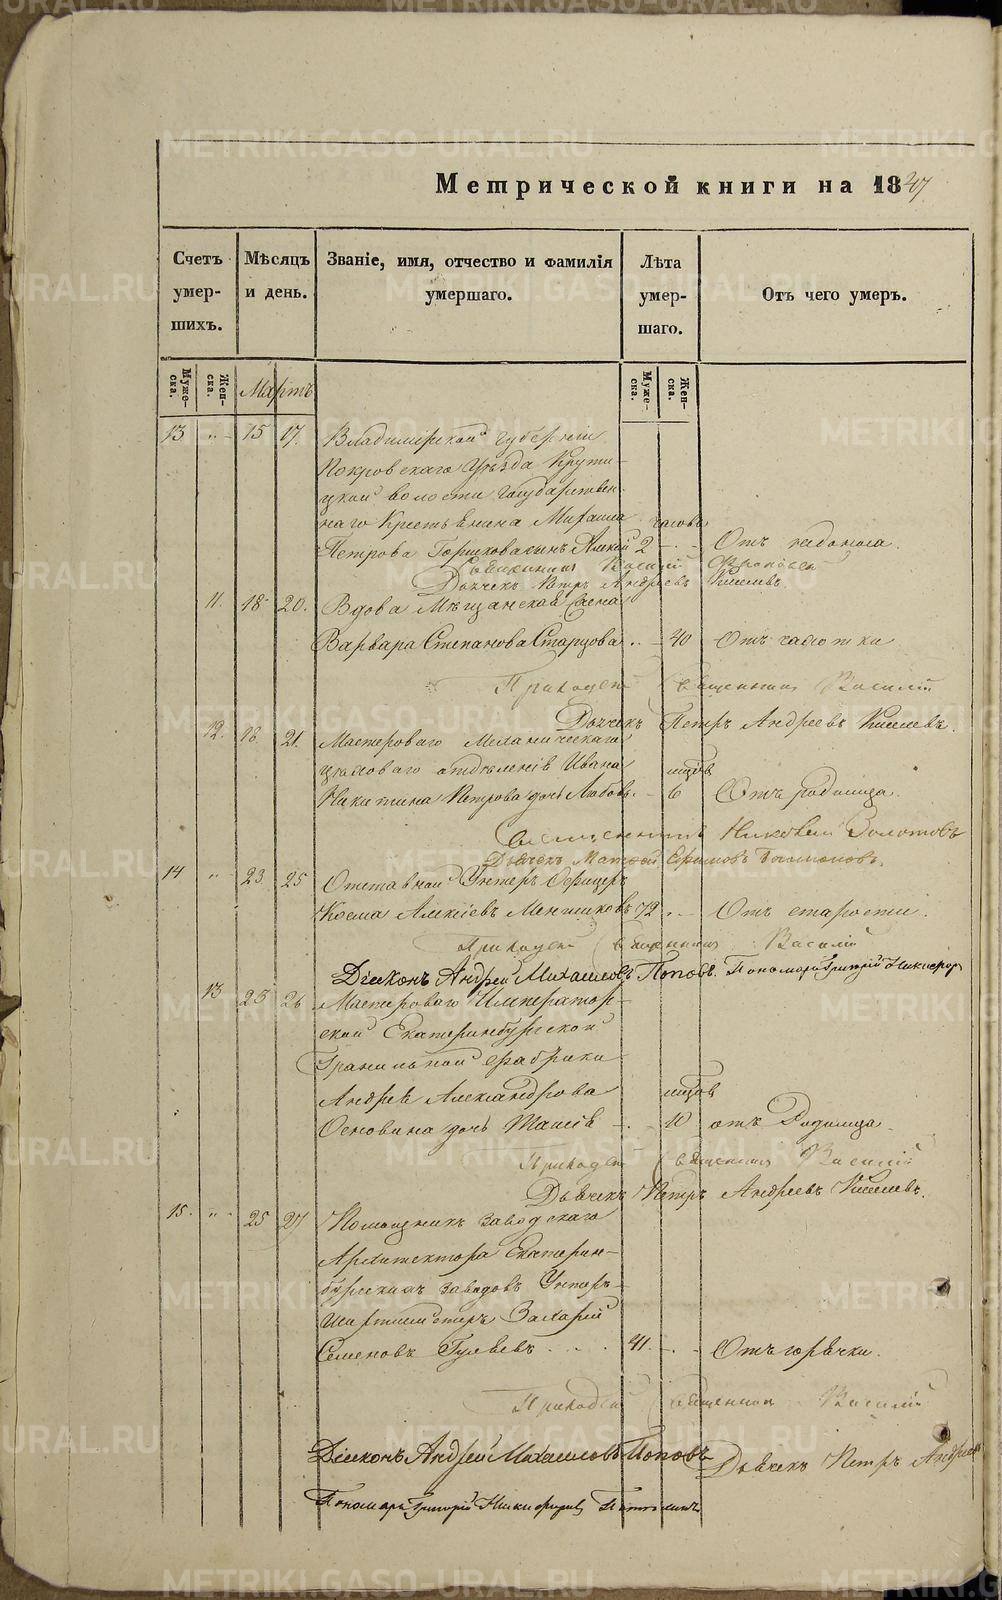 Метрической книги на 1847
Счетъ умерших. Мѣсяцъ и день. Званіе, имя, отчество и фамилія умершаго. Лѣта умершаго. Отъ чего умеръ.
Мужеска. Женска. Мартъ Мужеска. Женска.
13 " 15 17. Владимірской губерніи
Покровскаго Уѣзда Крути-
цкой волости государствен-
наго Крестьянина Михаила часовъ
Петрова сынъ 2 - Отъ
Священникъ Василій
Дьячекъ Петръ Андреевъ Киселевъ.
11. 18 20. Вдова Мѣщанская
Варвара Степанова Старцова - 40 Отъ чахотки
Приход Священникъ Василій
Дьячекъ Петръ Андреевъ Киселевъ.
12. 18. 21. Мастероваго Механическаго
цеховаго отдѣленія Ивана мцовъ
Никитина Петрова дочь Любовь. - 6 Отъ родимца.
Священникъ Николай Золотовъ
Дьячекъ Матвей Ефимовъ
14 " 23 25 Отставной Унтеръ Офицеръ
Косма Алексѣевъ Меншиковъ 72 - Отъ старости.
Приход Священникъ Василій
Діаконъ Андрей Михаиловъ Поповъ. Пономарь Григорій Никифор
13 23 26 Мастероваго Император-
ской Екатеринбургской
Гранильной Фабрики
Андрея Александрова мцовъ
дочь Таисія - 10 отъ Родимца
Приход Священникъ Василій
Дьячекъ Петръ Андреевъ Киселевъ.
15. " 25 27 Помощникъ Заводскаго
Архитектора Екатерин-
бургскихъ заводовъ Унтеръ-
Шихтмейстеръ Захарій
Семеновъ Гуляевъ . . . 41. - Отъ горячки.
Приход Священникъ Василій
Діаконъ Андрей Михаиловъ Поповъ Дьячекъ Петръ Андреев
Пономарь Григорій Никифоровъ
METRIKI.GASO-URAL.RU